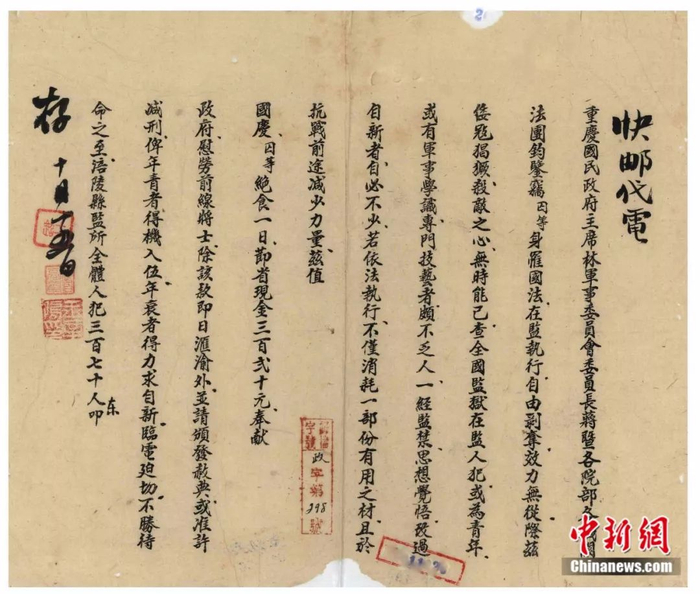 快郵代電
重慶國民政府主席林軍事委員會委員長蔣暨各院部
法團鈞鑒竊囚等身罹國法在監執行自由剥奪效力無從際茲
倭寇猖獗殺敵之心無時能已查全國監獄在監人犯或為青年
或有軍事學識專門技藝者頗不乏人一經監禁思想覺悟改過
自新者自必不少若依法執行不僅消耗一部份有用之材且於
抗戰前途減少力量茲值
國慶囚等絕食一日節省現金三百弍十元奉献
政府慰勞前線將士除該款即日滙渝外並請頒發赦典或准許
減刑俾年青者得機入伍年衰者得力求自新臨電迫切不勝待
命之至涪陵縣監所全體人犯三百七十人叩
东
存
十月十五日
政字第398號
中新網
Chinanews.com